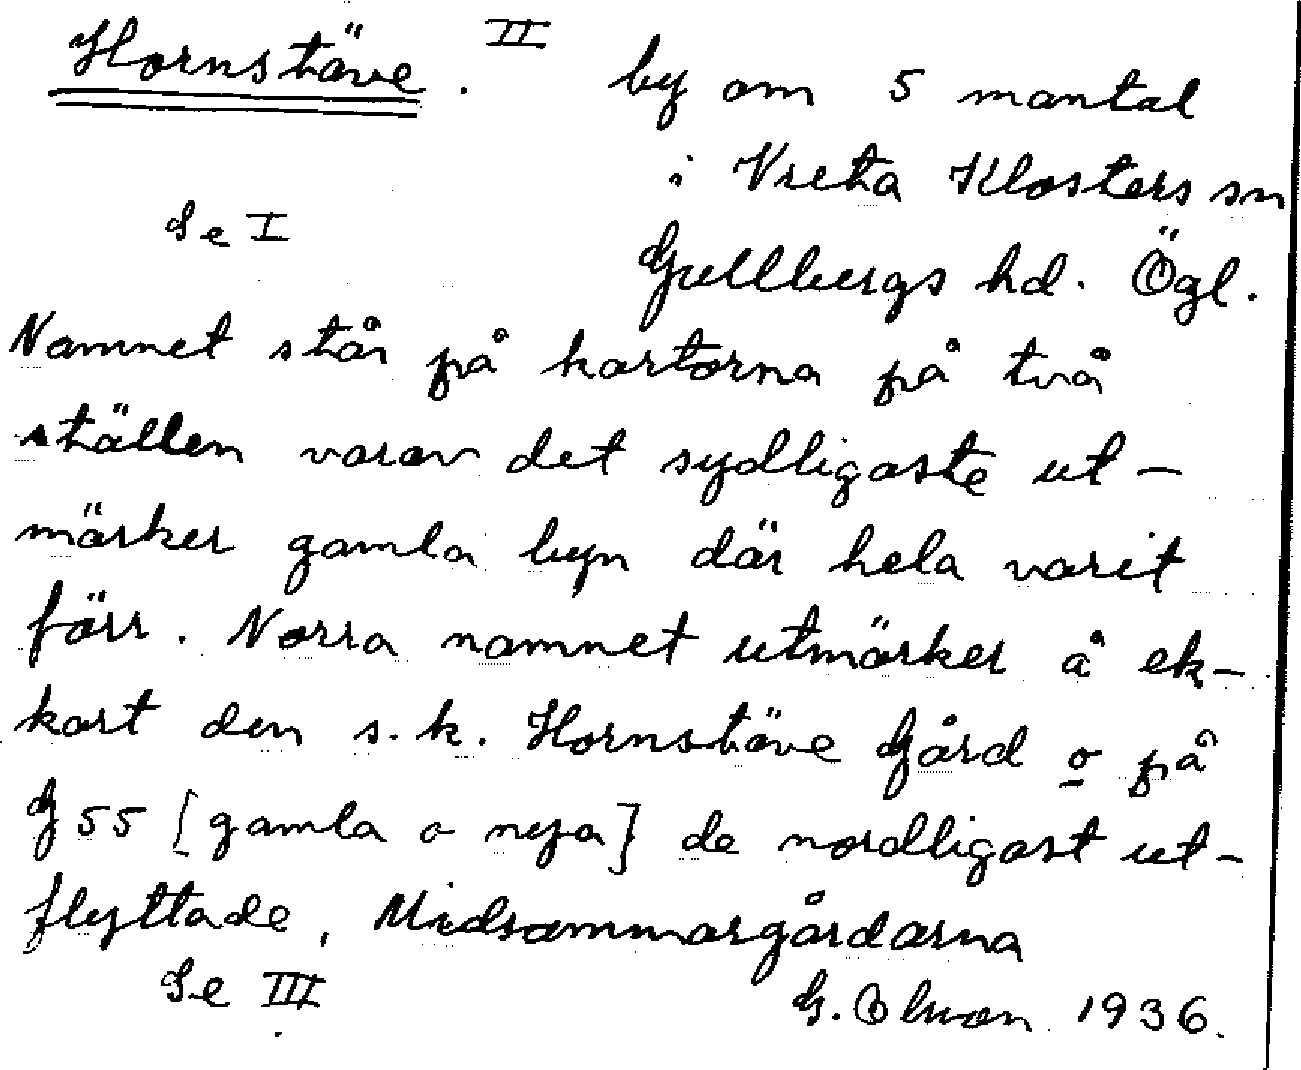 Hornstäve. II by om 5 mantal
i Vreta Klosters sn
Se I
Gullbergs hd. Ögl.
Namnet står på kartorna på två
ställen varav det sydligaste ut-
märker gamla byn där hela varit
förr. Norra namnet utmärker å ek-
kart den s.k. Hornstäve Gård o på
G 55 [gamla o nya] de nordligast ut-
flyttade, Midsommargårdarna
Se III
G. 1936.